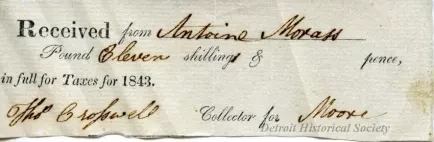 Received from Antoine Morass
Pound Eleven shillings & pence,
in full for Taxes for 1843.
Thos Crosswell Collector for Moore
Detroit Historical Society